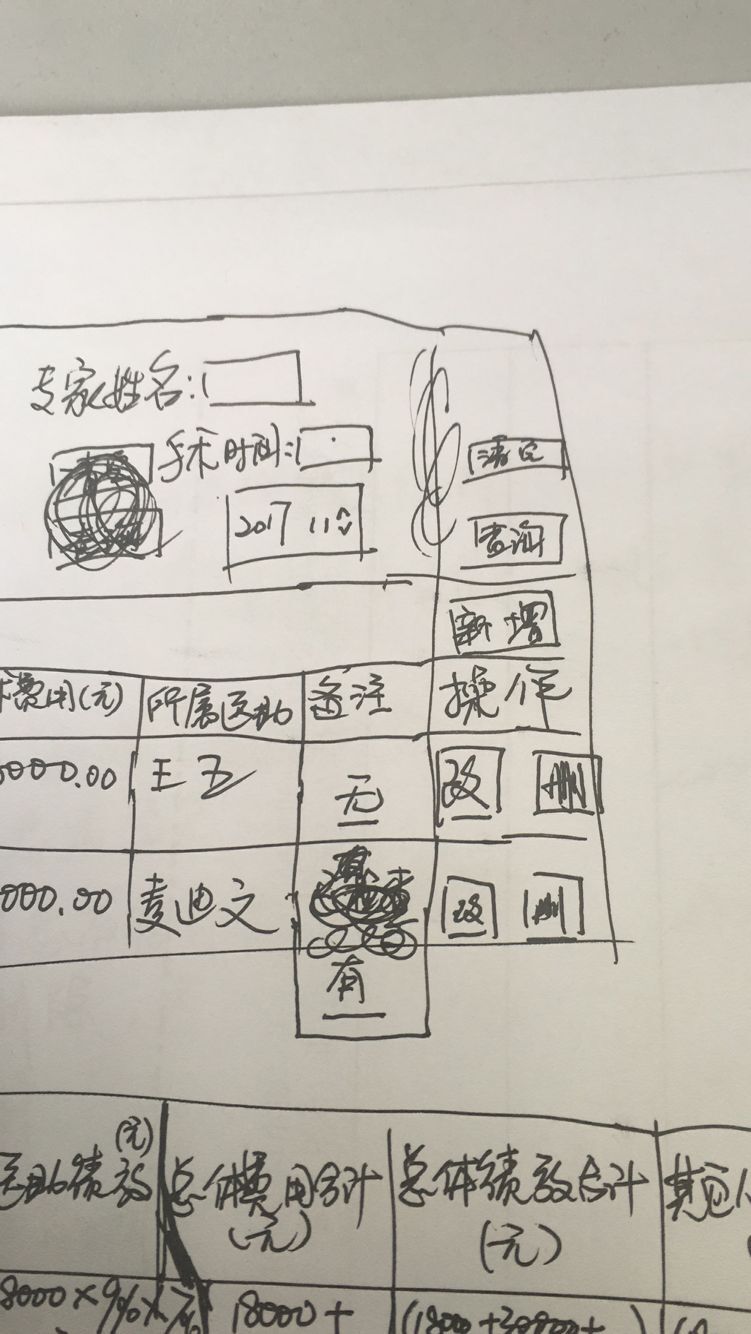 专家姓名:
手术时间:
清空
2017 11
查询
新增
术费用(元) 所属医助 备注 操作
000.00 王五 无 改 删
000.00 麦迪文 有 改 删
医助绩效(元) 总体费用合计(元) 总体绩效合计(元) 其它
8000×9%× 18000+ (1800+30800+